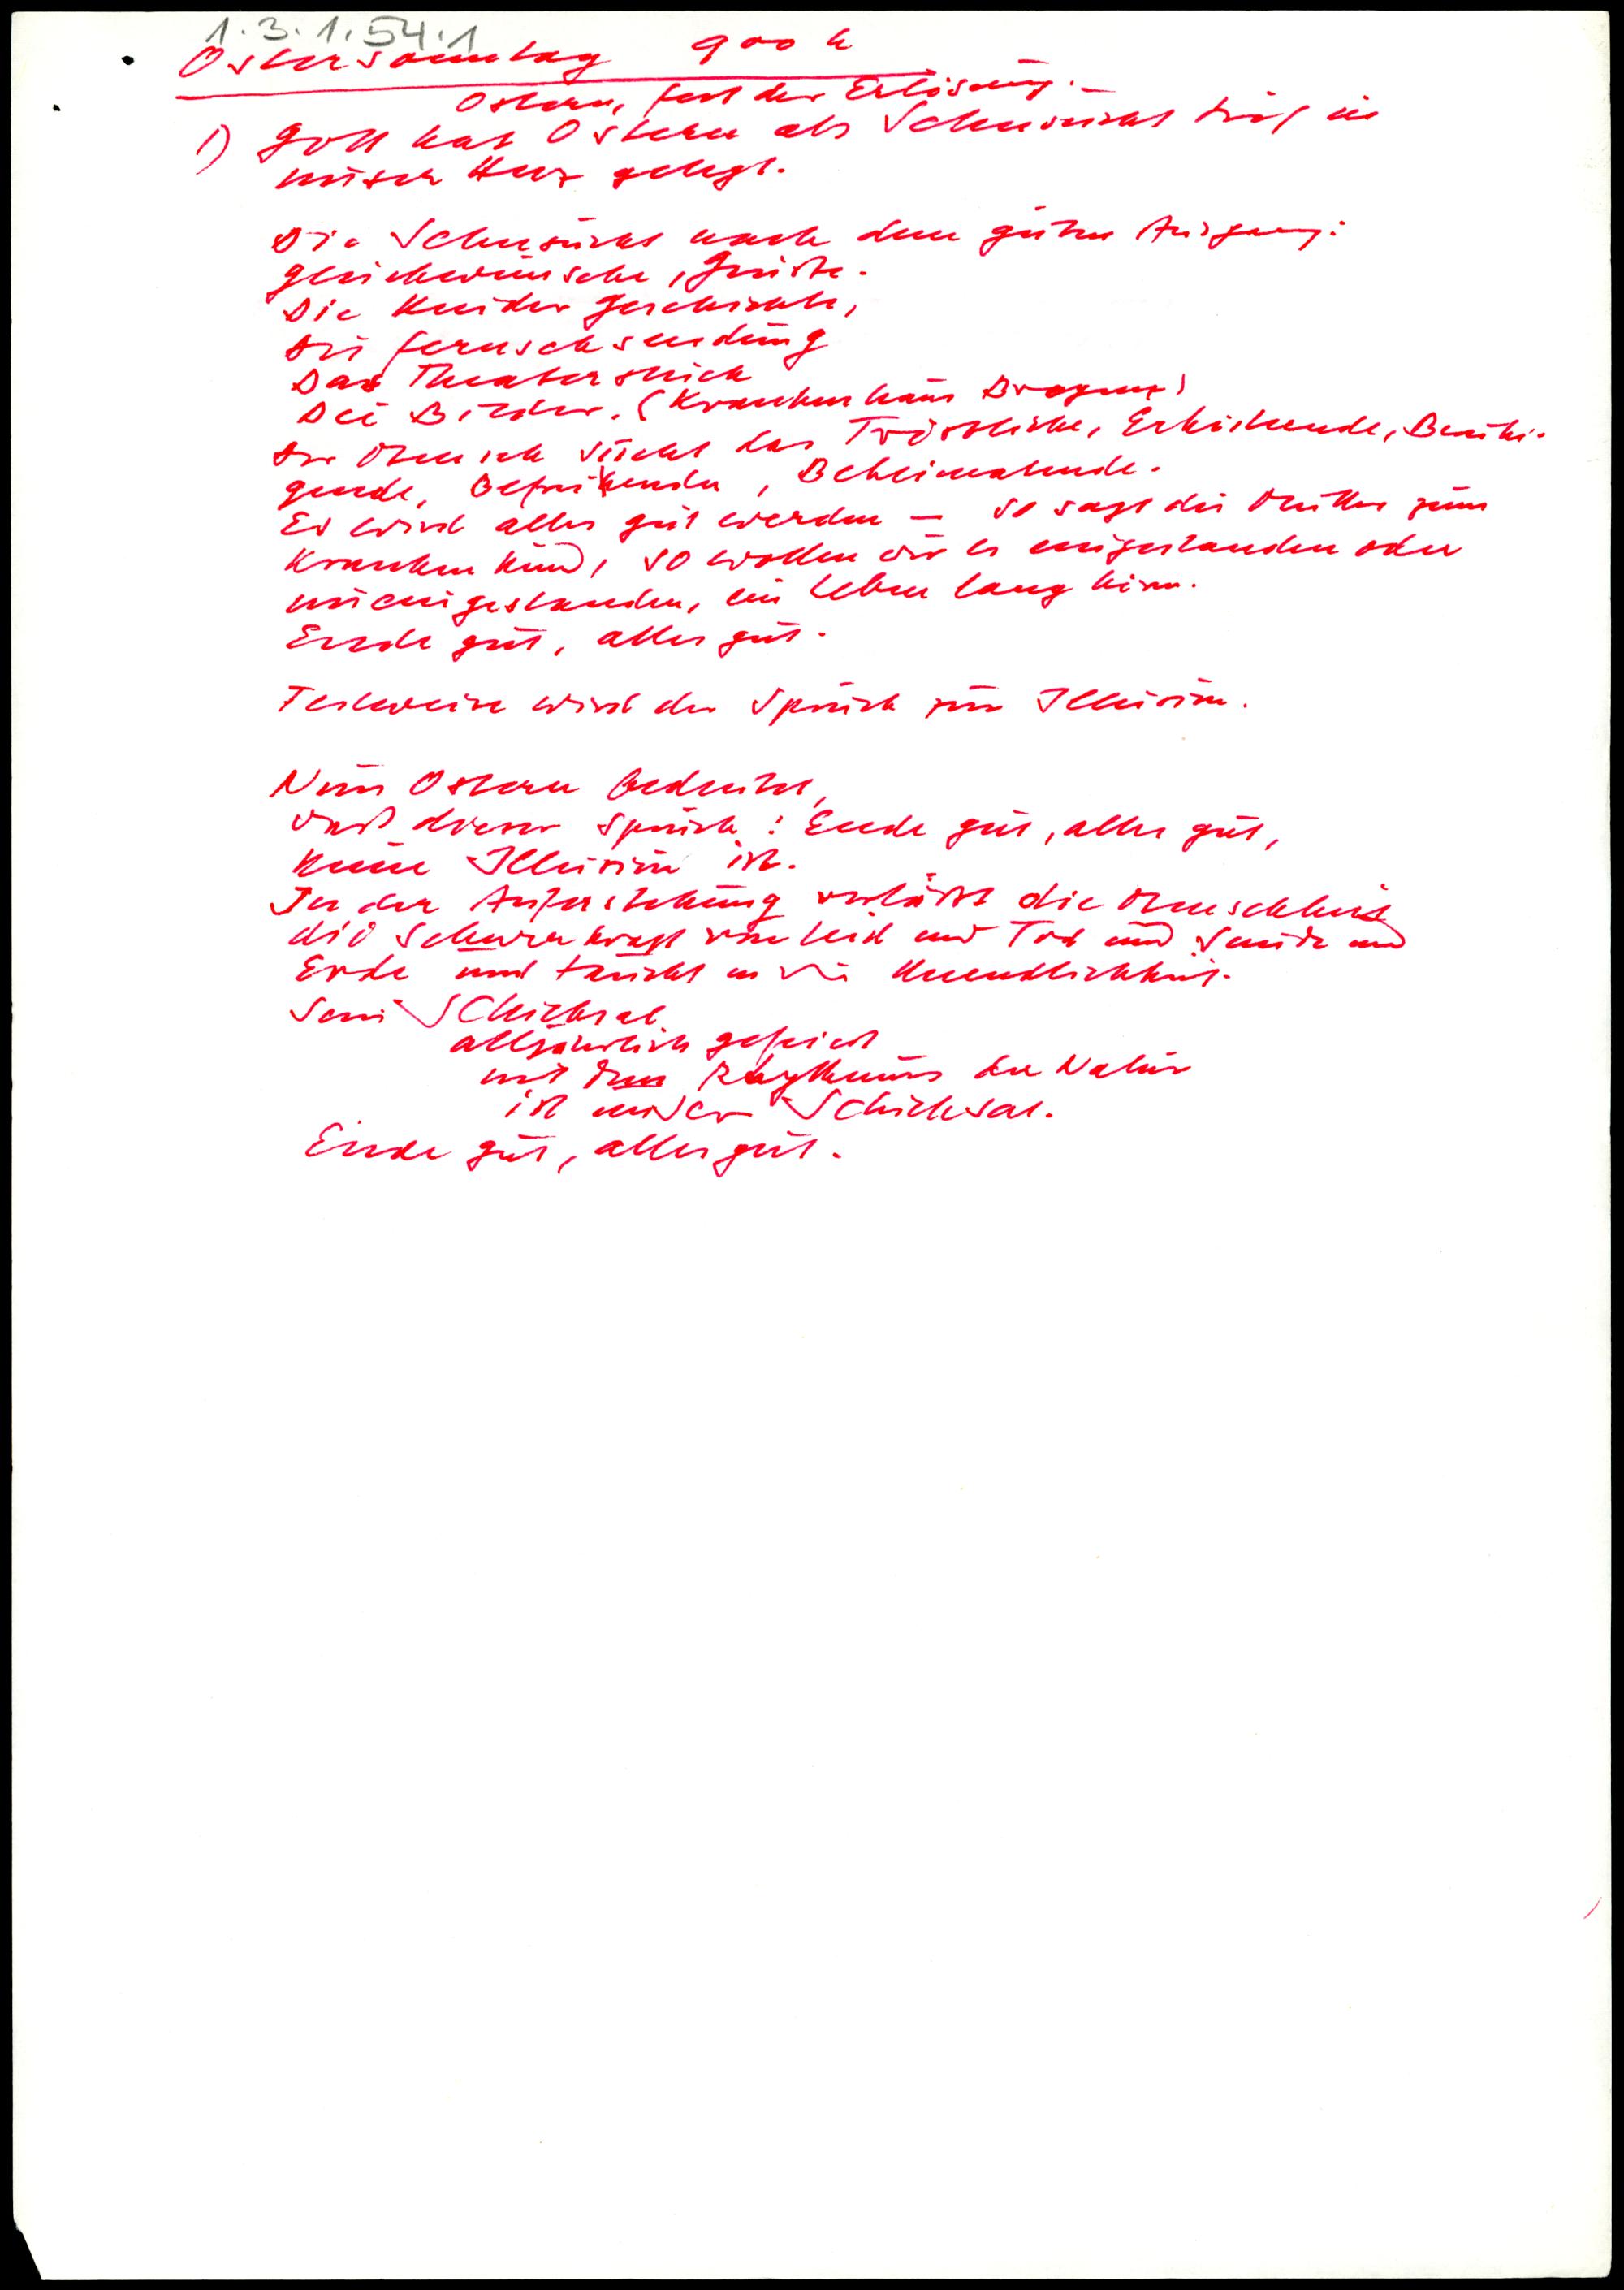 1.3.1.54.1
Ostersonntag 900 h
Ostern, Fest der Erlösung.
1) Gott hat Ostern als Sehnsucht tief in
unser Herz gelegt.
Die Sehnsucht nach dem guten Ausgang:
Glückwünsche, Grüße.
Die Kindergeschichte,
Die Fernsehsendung
Das Theaterstück
Die Bilder. (Krankenhaus Bregenz)
Der Mensch sucht das Tröstliche, Erheiternde, Beruhi-
gende, , Beheimatende.
Es wird alles gut werden – so sagt die Mutter zum
kranken Kind, so wollen wir es eingestanden oder
uneingestanden, ein Leben lang hören.
Ende gut, alles gut.
Teilweise wird der Spruch zur Illusion.
Nun Ostern bedeutet,
daß dieser Spruch: Ende gut, alles gut,
keine Illusion ist.
In der Auferstehung verläßt die Menschheit
die Schwerkraft von Leid und Tod und Sünde und
Erde und taucht in die Unendlichkeit.
Sein Schicksal
alljährlich gefeiert
mit dem Rhythmus der Natur
ist unser Schicksal.
Ende gut, alles gut.